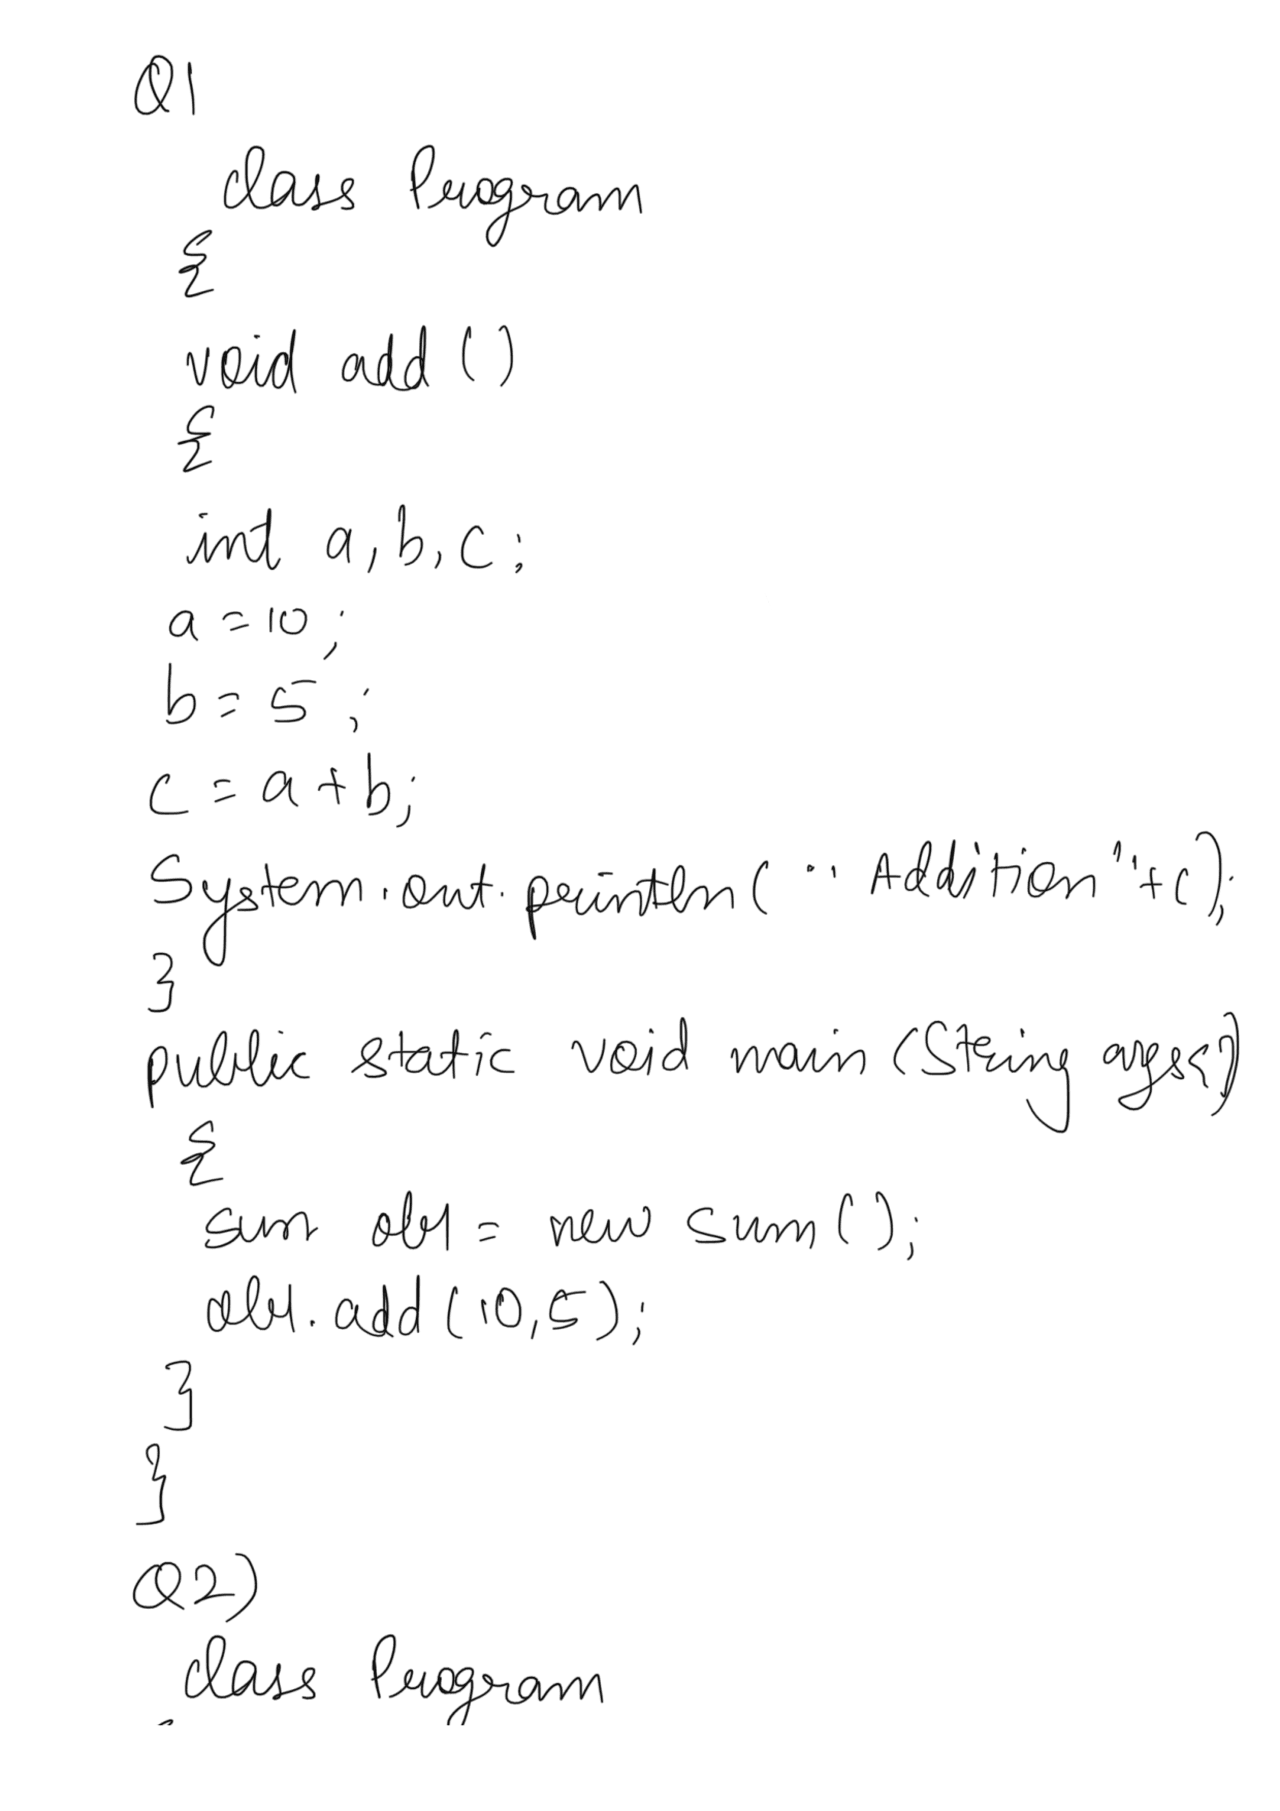 Q1
class Program
{
void add ()
{
int a, b, c;
a = 10;
b = 5;
c = a + b;
System.out.println(" Addition"+c);
}
public static void main (String args[])
{
sum obj = new sum();
obj.add (10,5);
}
}
Q2)
class Program